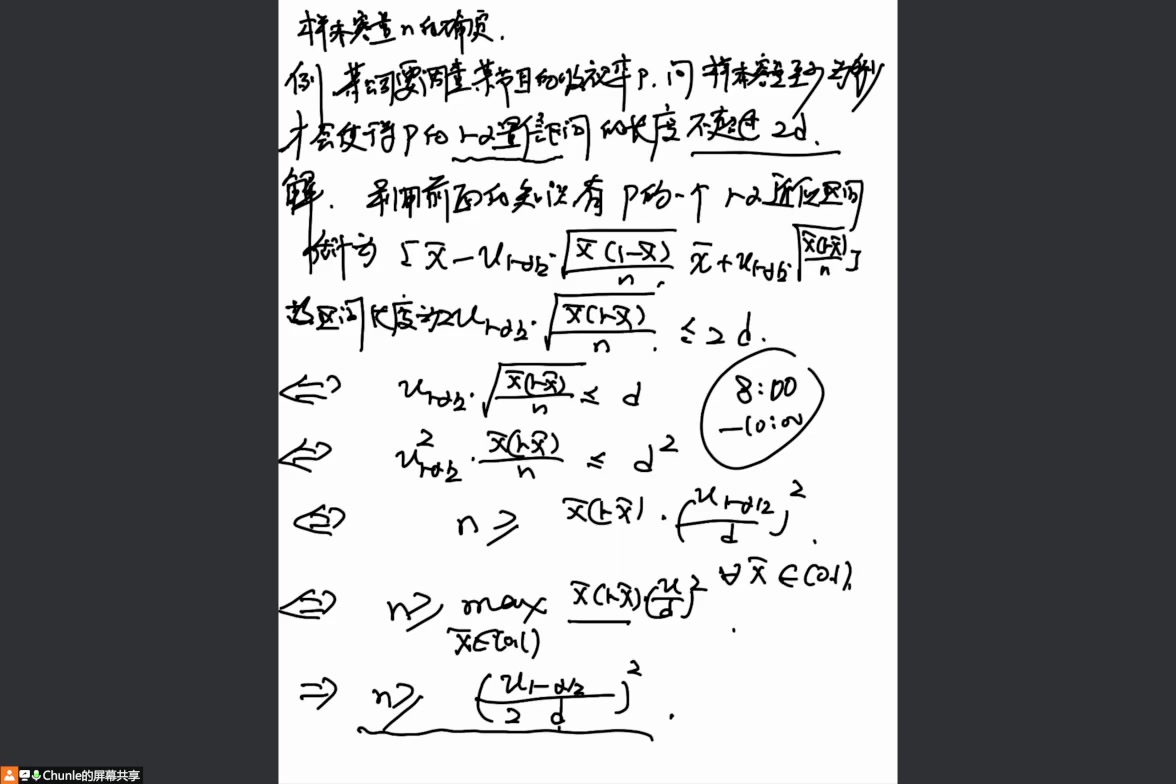 样本容量n的确定.
例 某公司要调查某节目的收视率p.问 样本容量至少为多少
才会使得p的1-α置信区间的长度不超过2d.
解. 利用前面的知识有 p的一个 1-α近似区间
估计为 [x̄ - u_{1-α/2}·√(x̄(1-x̄)/n) x̄ + u_{1-α/2}·√(x̄(1-x̄)/n)]
故区间长度为2u_{1-α/2}·√(x̄(1-x̄)/n) ≤ 2d.
⇔ u_{1-α/2}·√(x̄(1-x̄)/n) ≤ d
8:00
-10:00
⇔ u²_{1-α/2}·x̄(1-x̄)/n ≤ d²
⇔ n ≥ x̄(1-x̄)·(u_{1-α/2}/d)².
∀ x̄ ∈ (0,1).
⇔ n ≥ max_{x̄∈(0,1)} x̄(1-x̄)·(u/d)².
⇒ n ≥ (u_{1-α/2}/2d)².
Chunle的屏幕共享